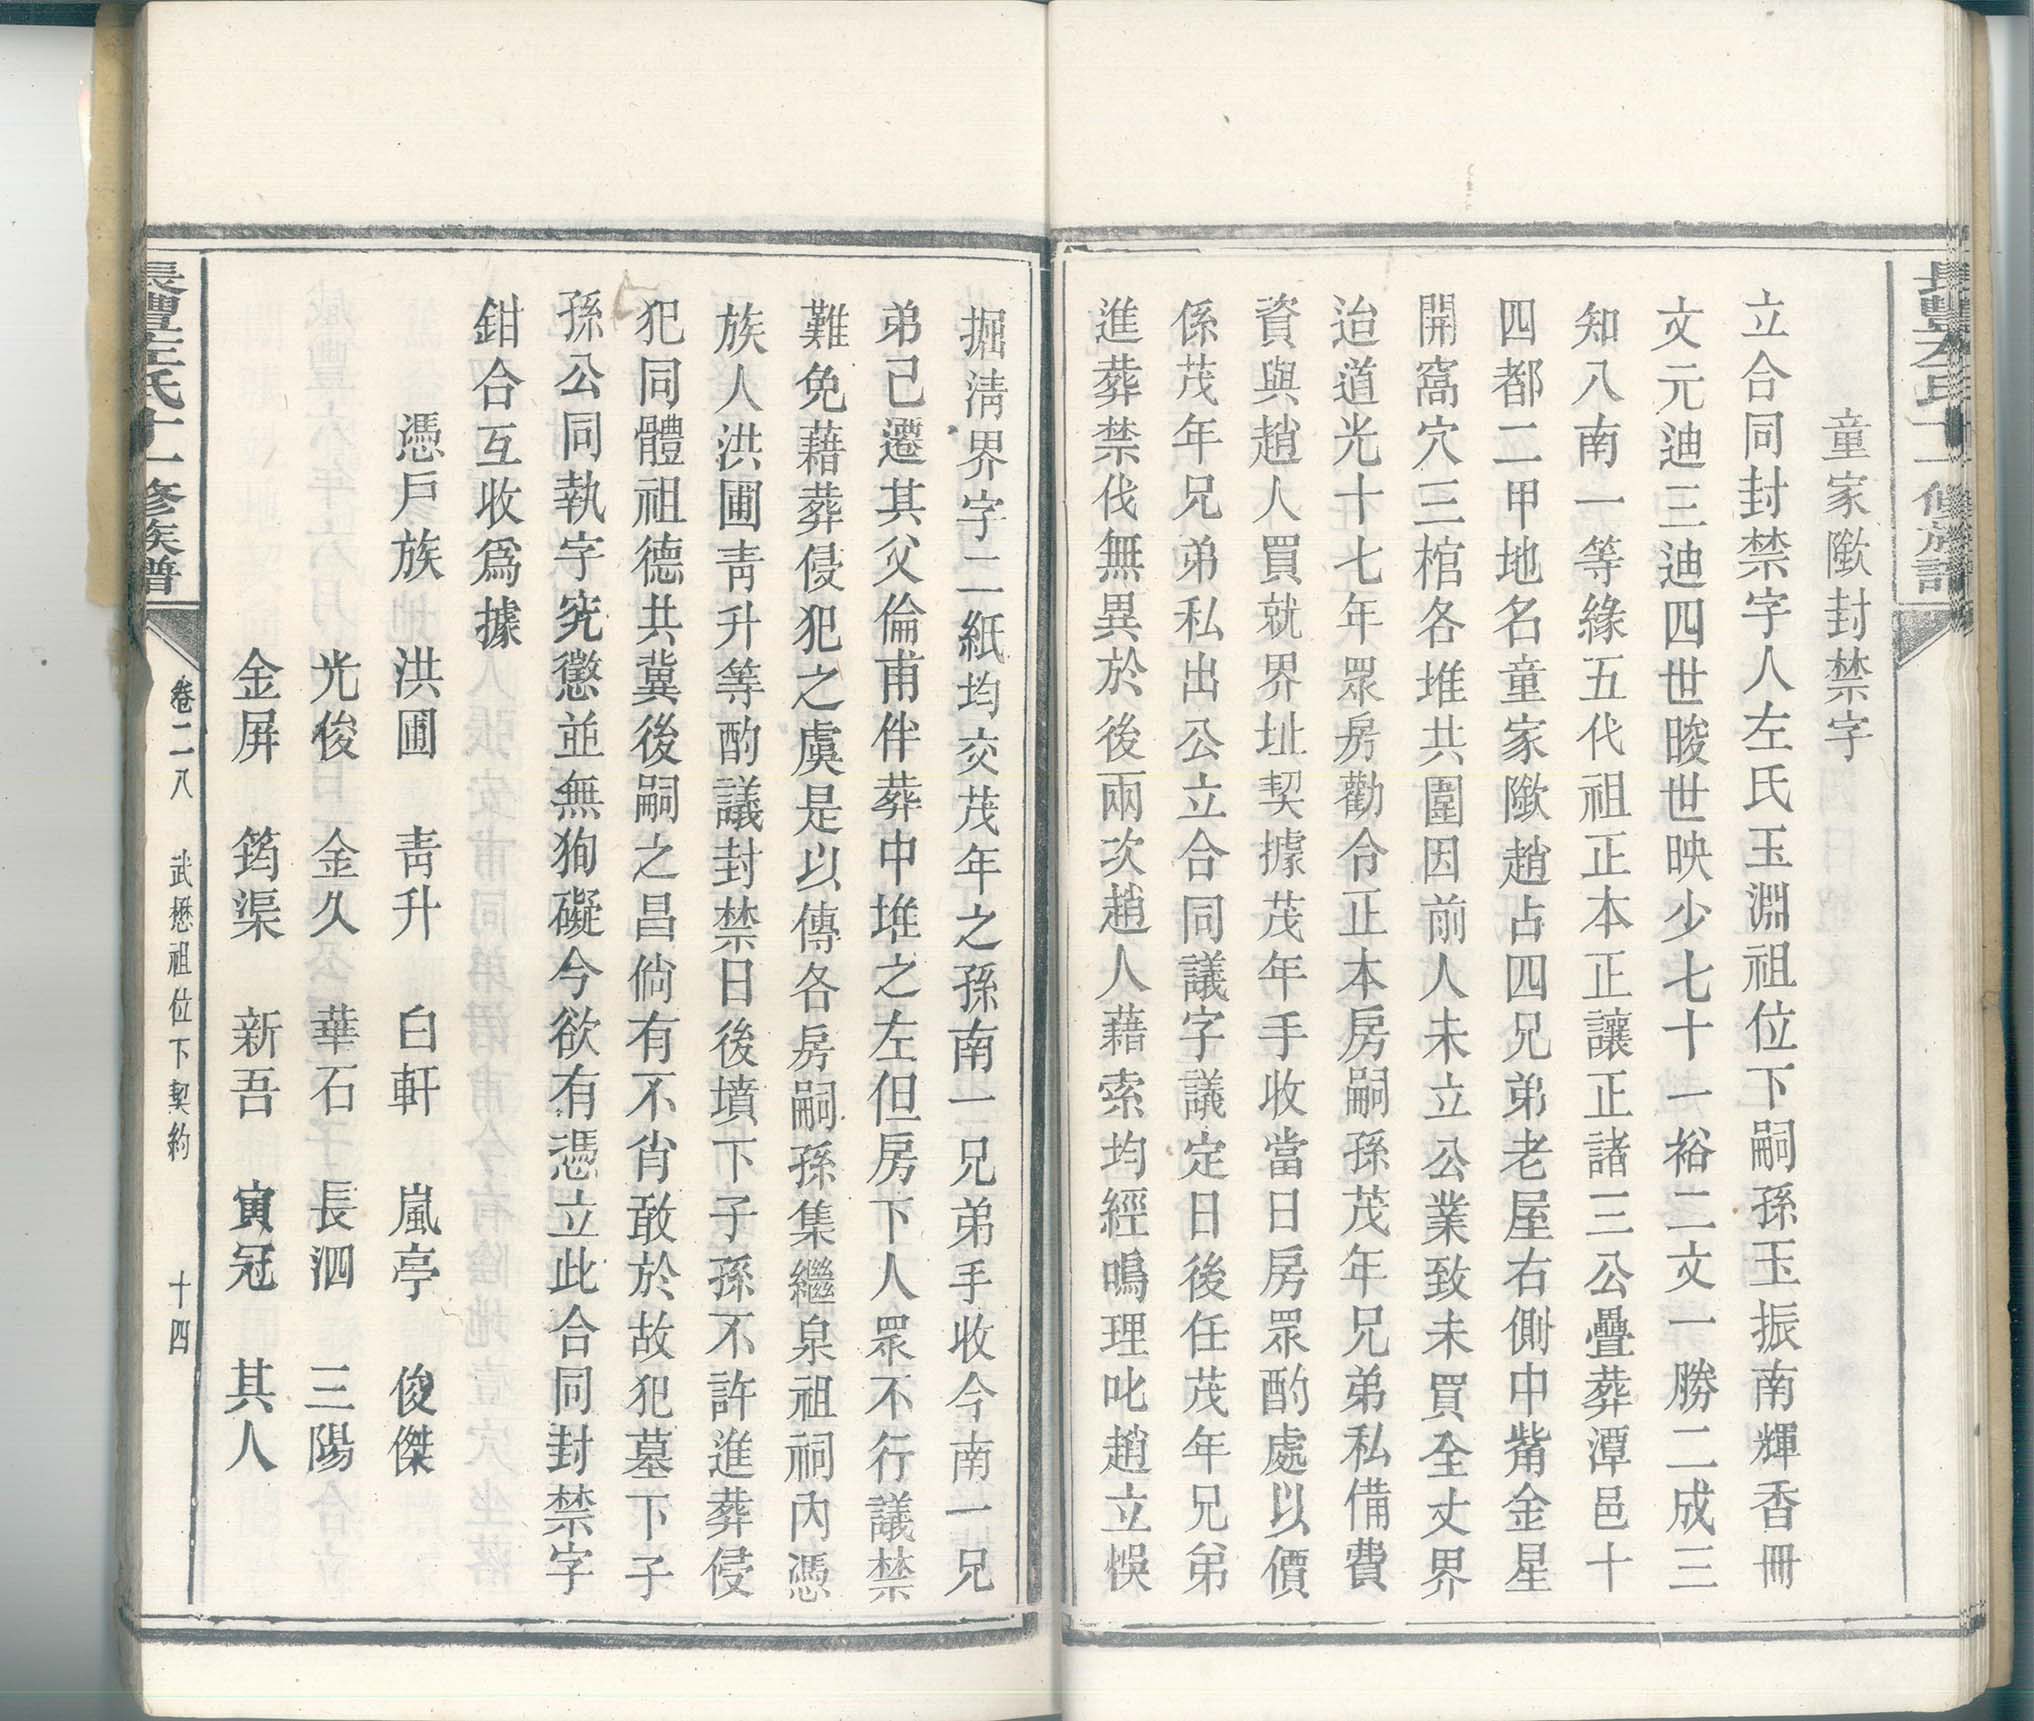 長豐左氏十一修族譜
童家隞封禁字
立合同封禁字人左氏玉淵祖位下嗣孫玉振南輝香冊
文元迪三迪四世晙世映少七十一裕二文一勝二成三
知八南一等緣五代祖正本正讓正諸三公疊葬潭邑十
四都二甲地名童家隞趙占四兄弟老屋右側中觜金星
開窩穴三棺各堆共圍因前人未立公業致未買全丈界
迨道光十七年眾房勸令正本房嗣孫茂年兄弟私備費
資與趙人買就界址契據茂年手收當日房眾酌處以價
係茂年兄弟私出公立合同議字議定日後任茂年兄弟
進葬禁伐無異於後兩次趙人藉索均經鳴理叱趙立悞
掘清界字二紙均交茂年之孫南一兄弟手收今南一兄
弟己遷其父倫甫伴葬中堆之左但房下人眾不行議禁
難免藉葬侵犯之虞是以傳各房嗣孫集繼泉祖祠內憑
族人洪圃青升等酌議封禁日後墳下子孫不許進葬侵
犯同體祖德共冀後嗣之昌倘有不肖敢於故犯墓下子
孫公同執字究懲並無狥礙今欲有憑立此合同封禁字
鉗合互收爲據
憑戶族　洪圃　青升　白軒　嵐亭　俊傑
光俊　金久　華石　長泗　三陽
金屏　筠渠　新吾　寅冠　其人
長豐左氏十一修族譜　卷二八　武懋祖位下契約　十四